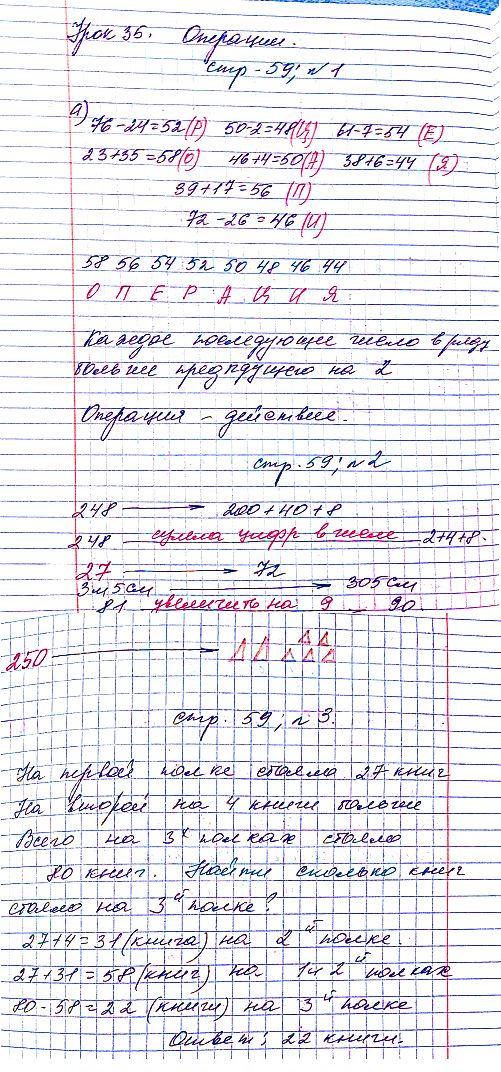 Урок 35. Операции.
стр - 59; № 1
а)
76-24=52(Р) 50-2=48(Ц) 61-7=54 (Е)
23+35=58(О) 46+4=50(А) 38+6=44 (Я)
39+17=56 (П)
72-26=46(И)
58 56 54 52 50 48 46 44
О П Е Р А Ц И Я
Каждое последующее число в ряду
больше предыдущего на 2
Операция - действие.
стр. 59; №2
248 → 200+40+8
248 сумма цифр в числе 2+4+8
27 → 72
3м 5см → 305см
81 увеличить на 9 90
250 →
стр. 59; № 3.
На первой полке стояло 27 книг
На второй на 4 книги больше
Всего на 3х полках стояло
80 книг. Найти сколько книг
стояло на 3й полке?
27+4=31(книга) на 2й полке.
27+31=58(книг) на 1и 2й полках
80-58=22 (книги) на 3й полке
Ответ: 22 книги.